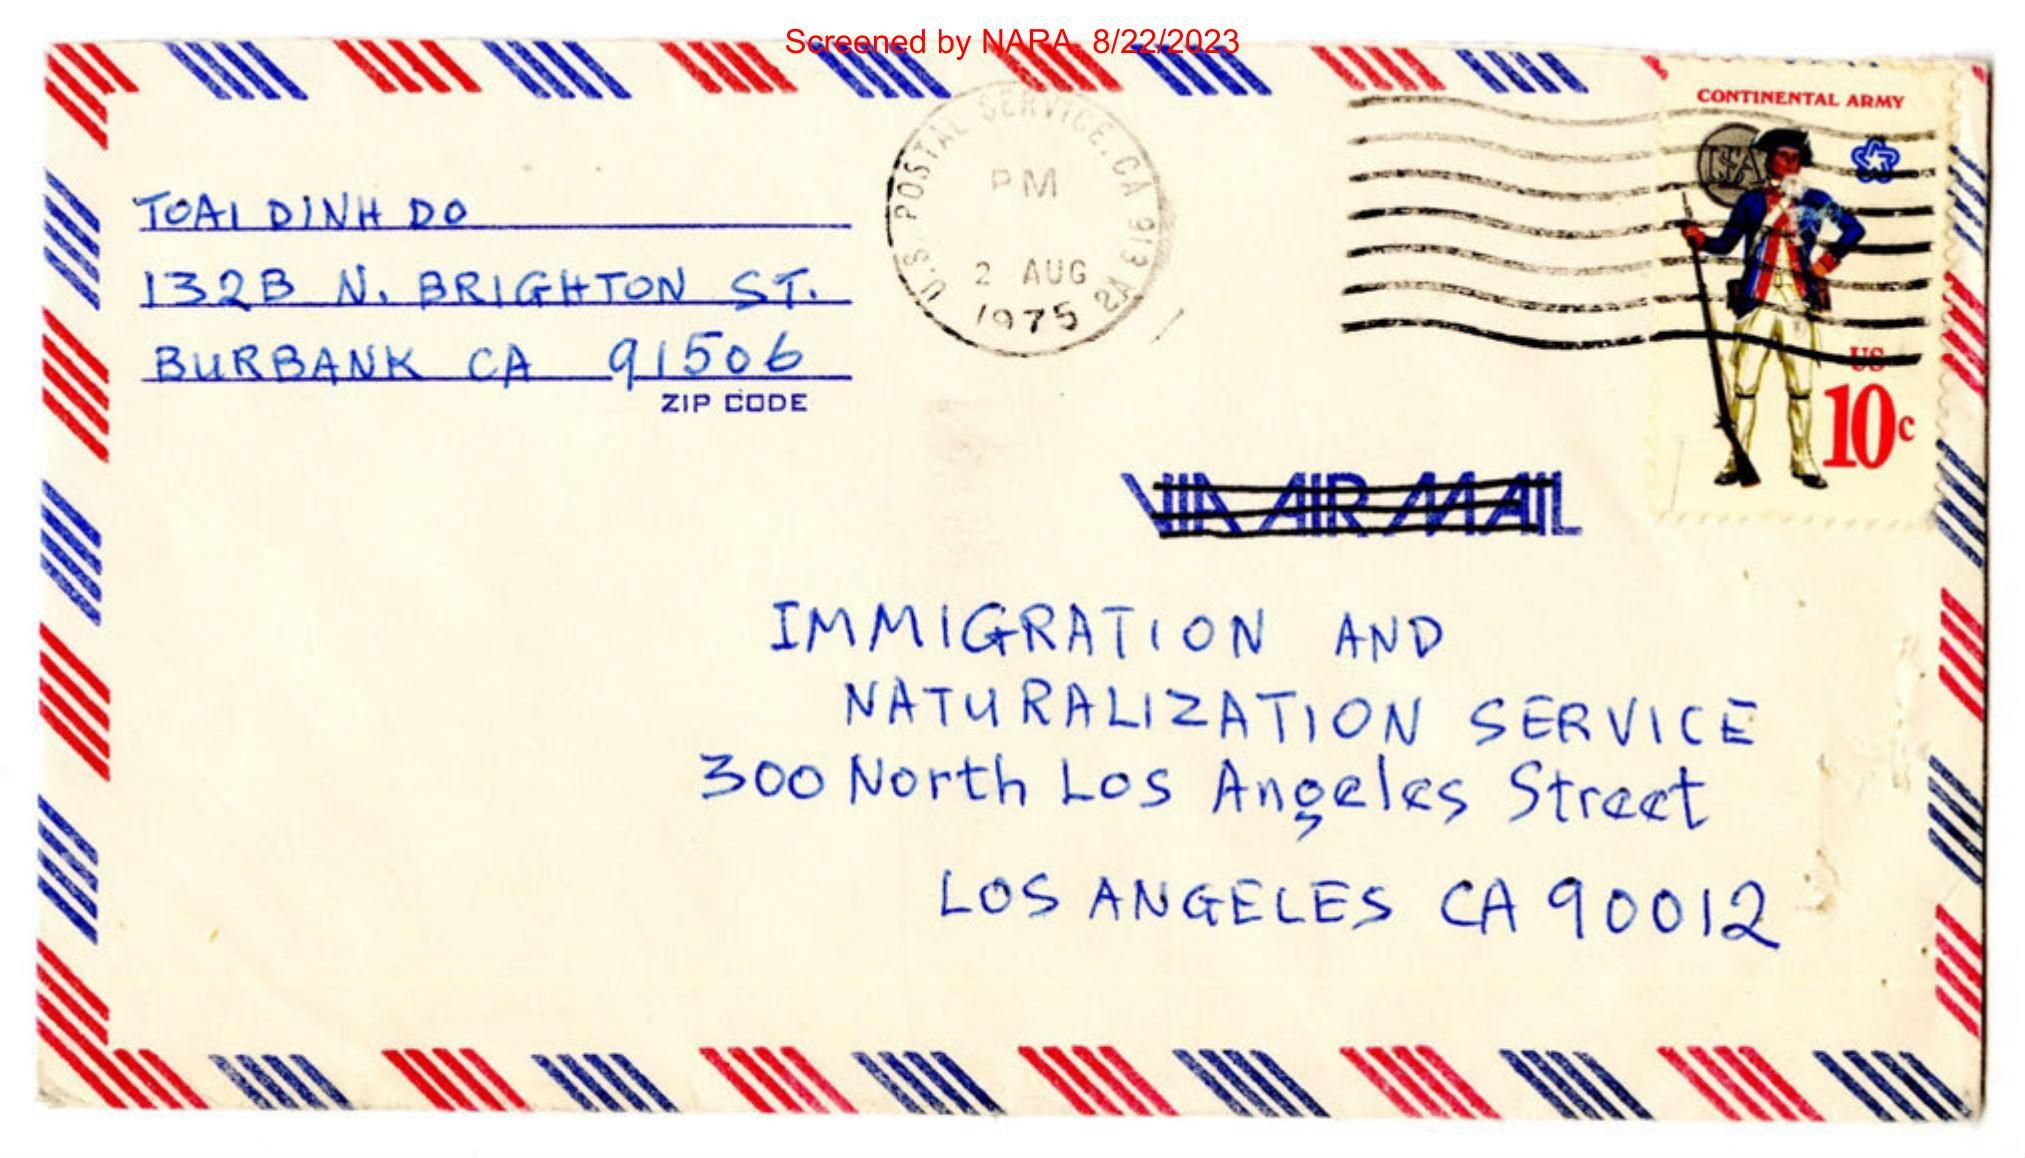 Screened by NARA, 8/22/2023
TOAI DINH DO
132B N. BRIGHTON ST.
BURBANK CA 91506
ZIP CODE
U.S. POSTAL SERVICE, CA 913
PM
2 AUG
1975
CONTINENTAL ARMY
US
10c
VIA AIR MAIL
IMMIGRATION AND
NATURALIZATION SERVICE
300 North Los Angeles Street
LOS ANGELES CA 90012